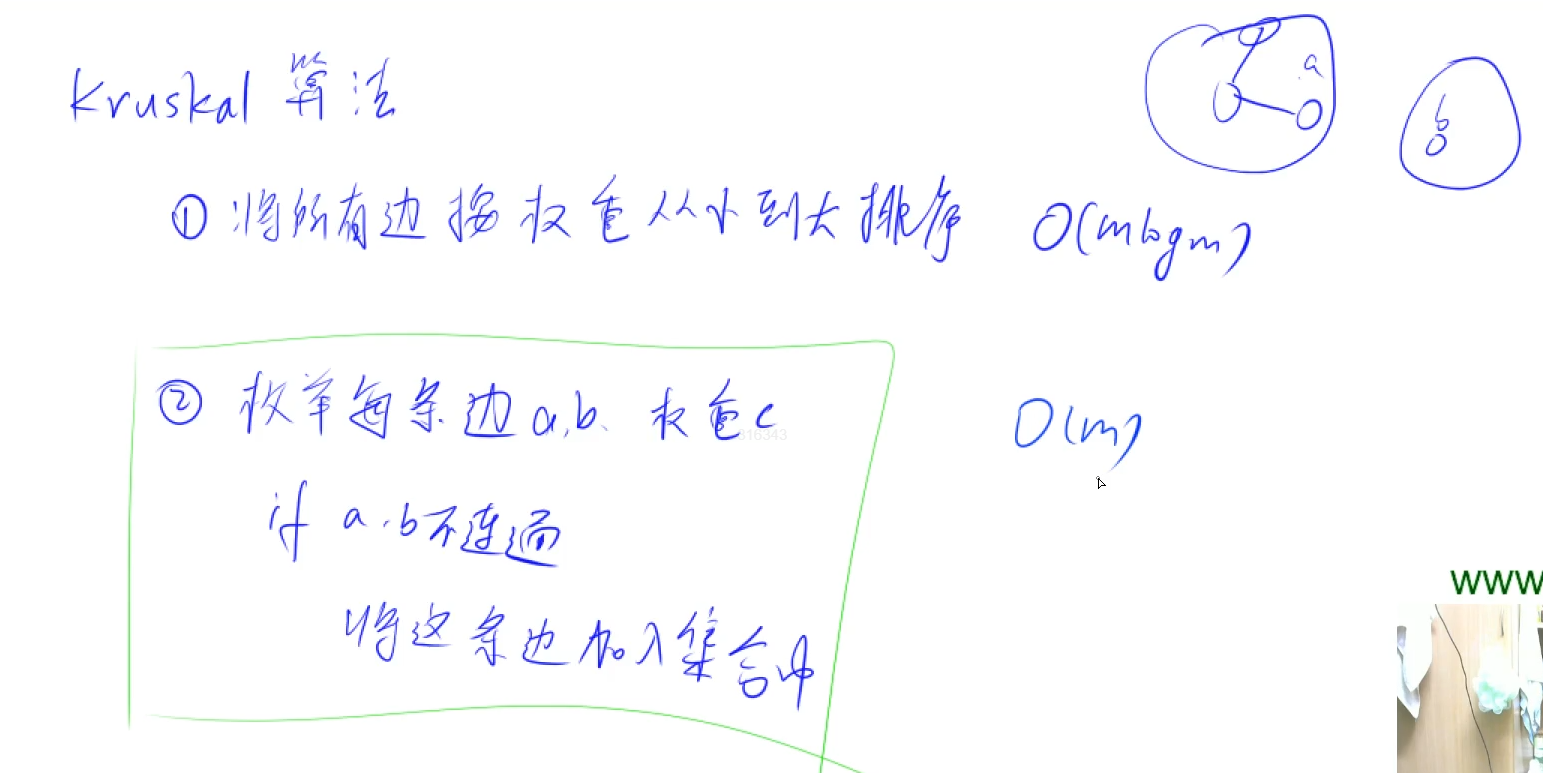 Kruskal 算法
a
b
① 将所有边按权重从小到大排序 O(mlogm)
② 枚举每条边a,b、权重c O(m)
816343
if a,b不连通
将这条边加入集合中
www